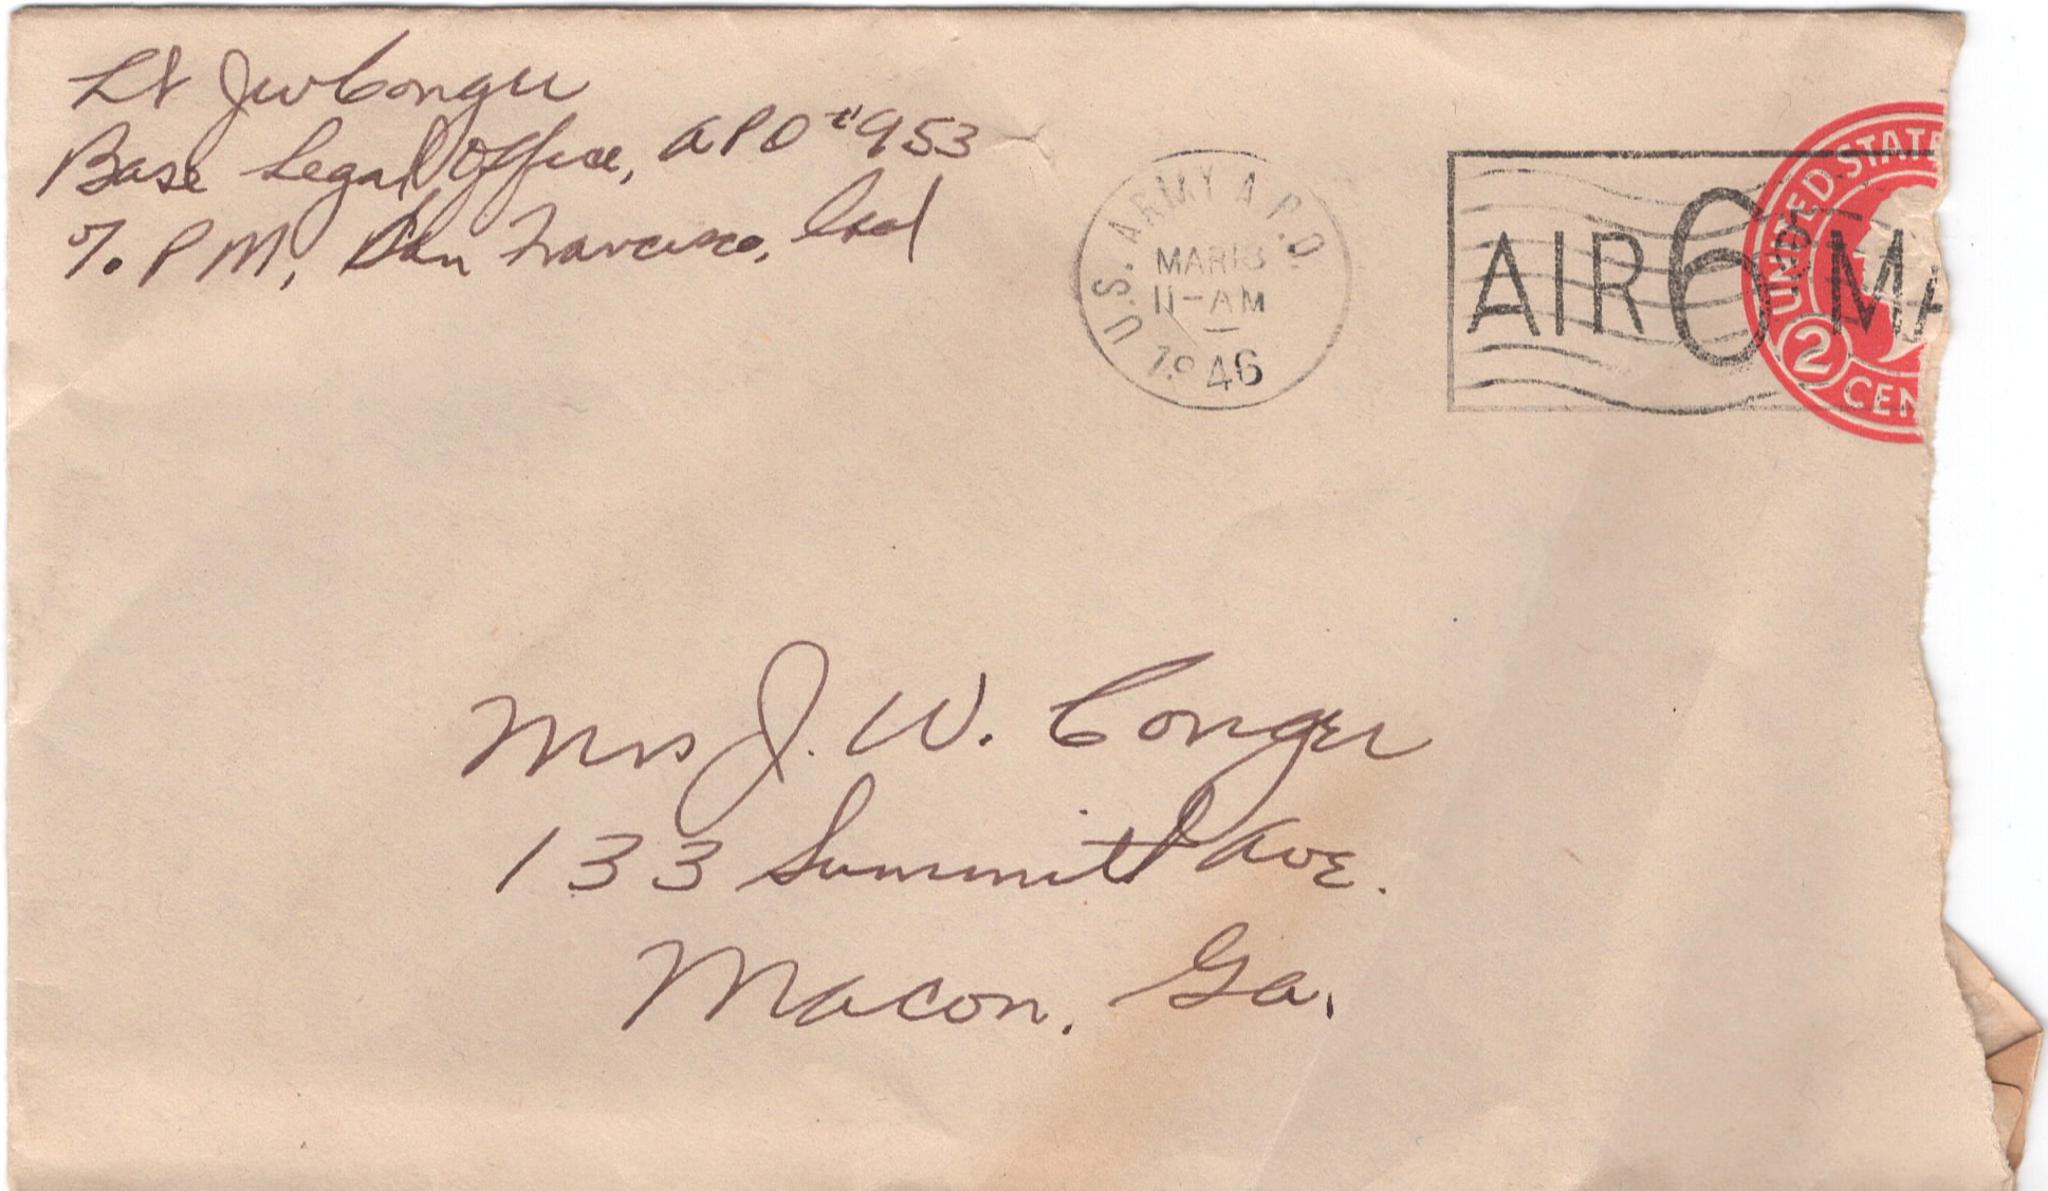 Lt JW Conger
Base Legal Office, APO #953
% PM, San Francisco, Cal
U.S. ARMY A.P.O.
MAR 13
11-AM
1946
AIR 6 MA
UNITED STATE
2 CEN
Mrs J. W. Conger
133 Summit Ave.
Macon, Ga.